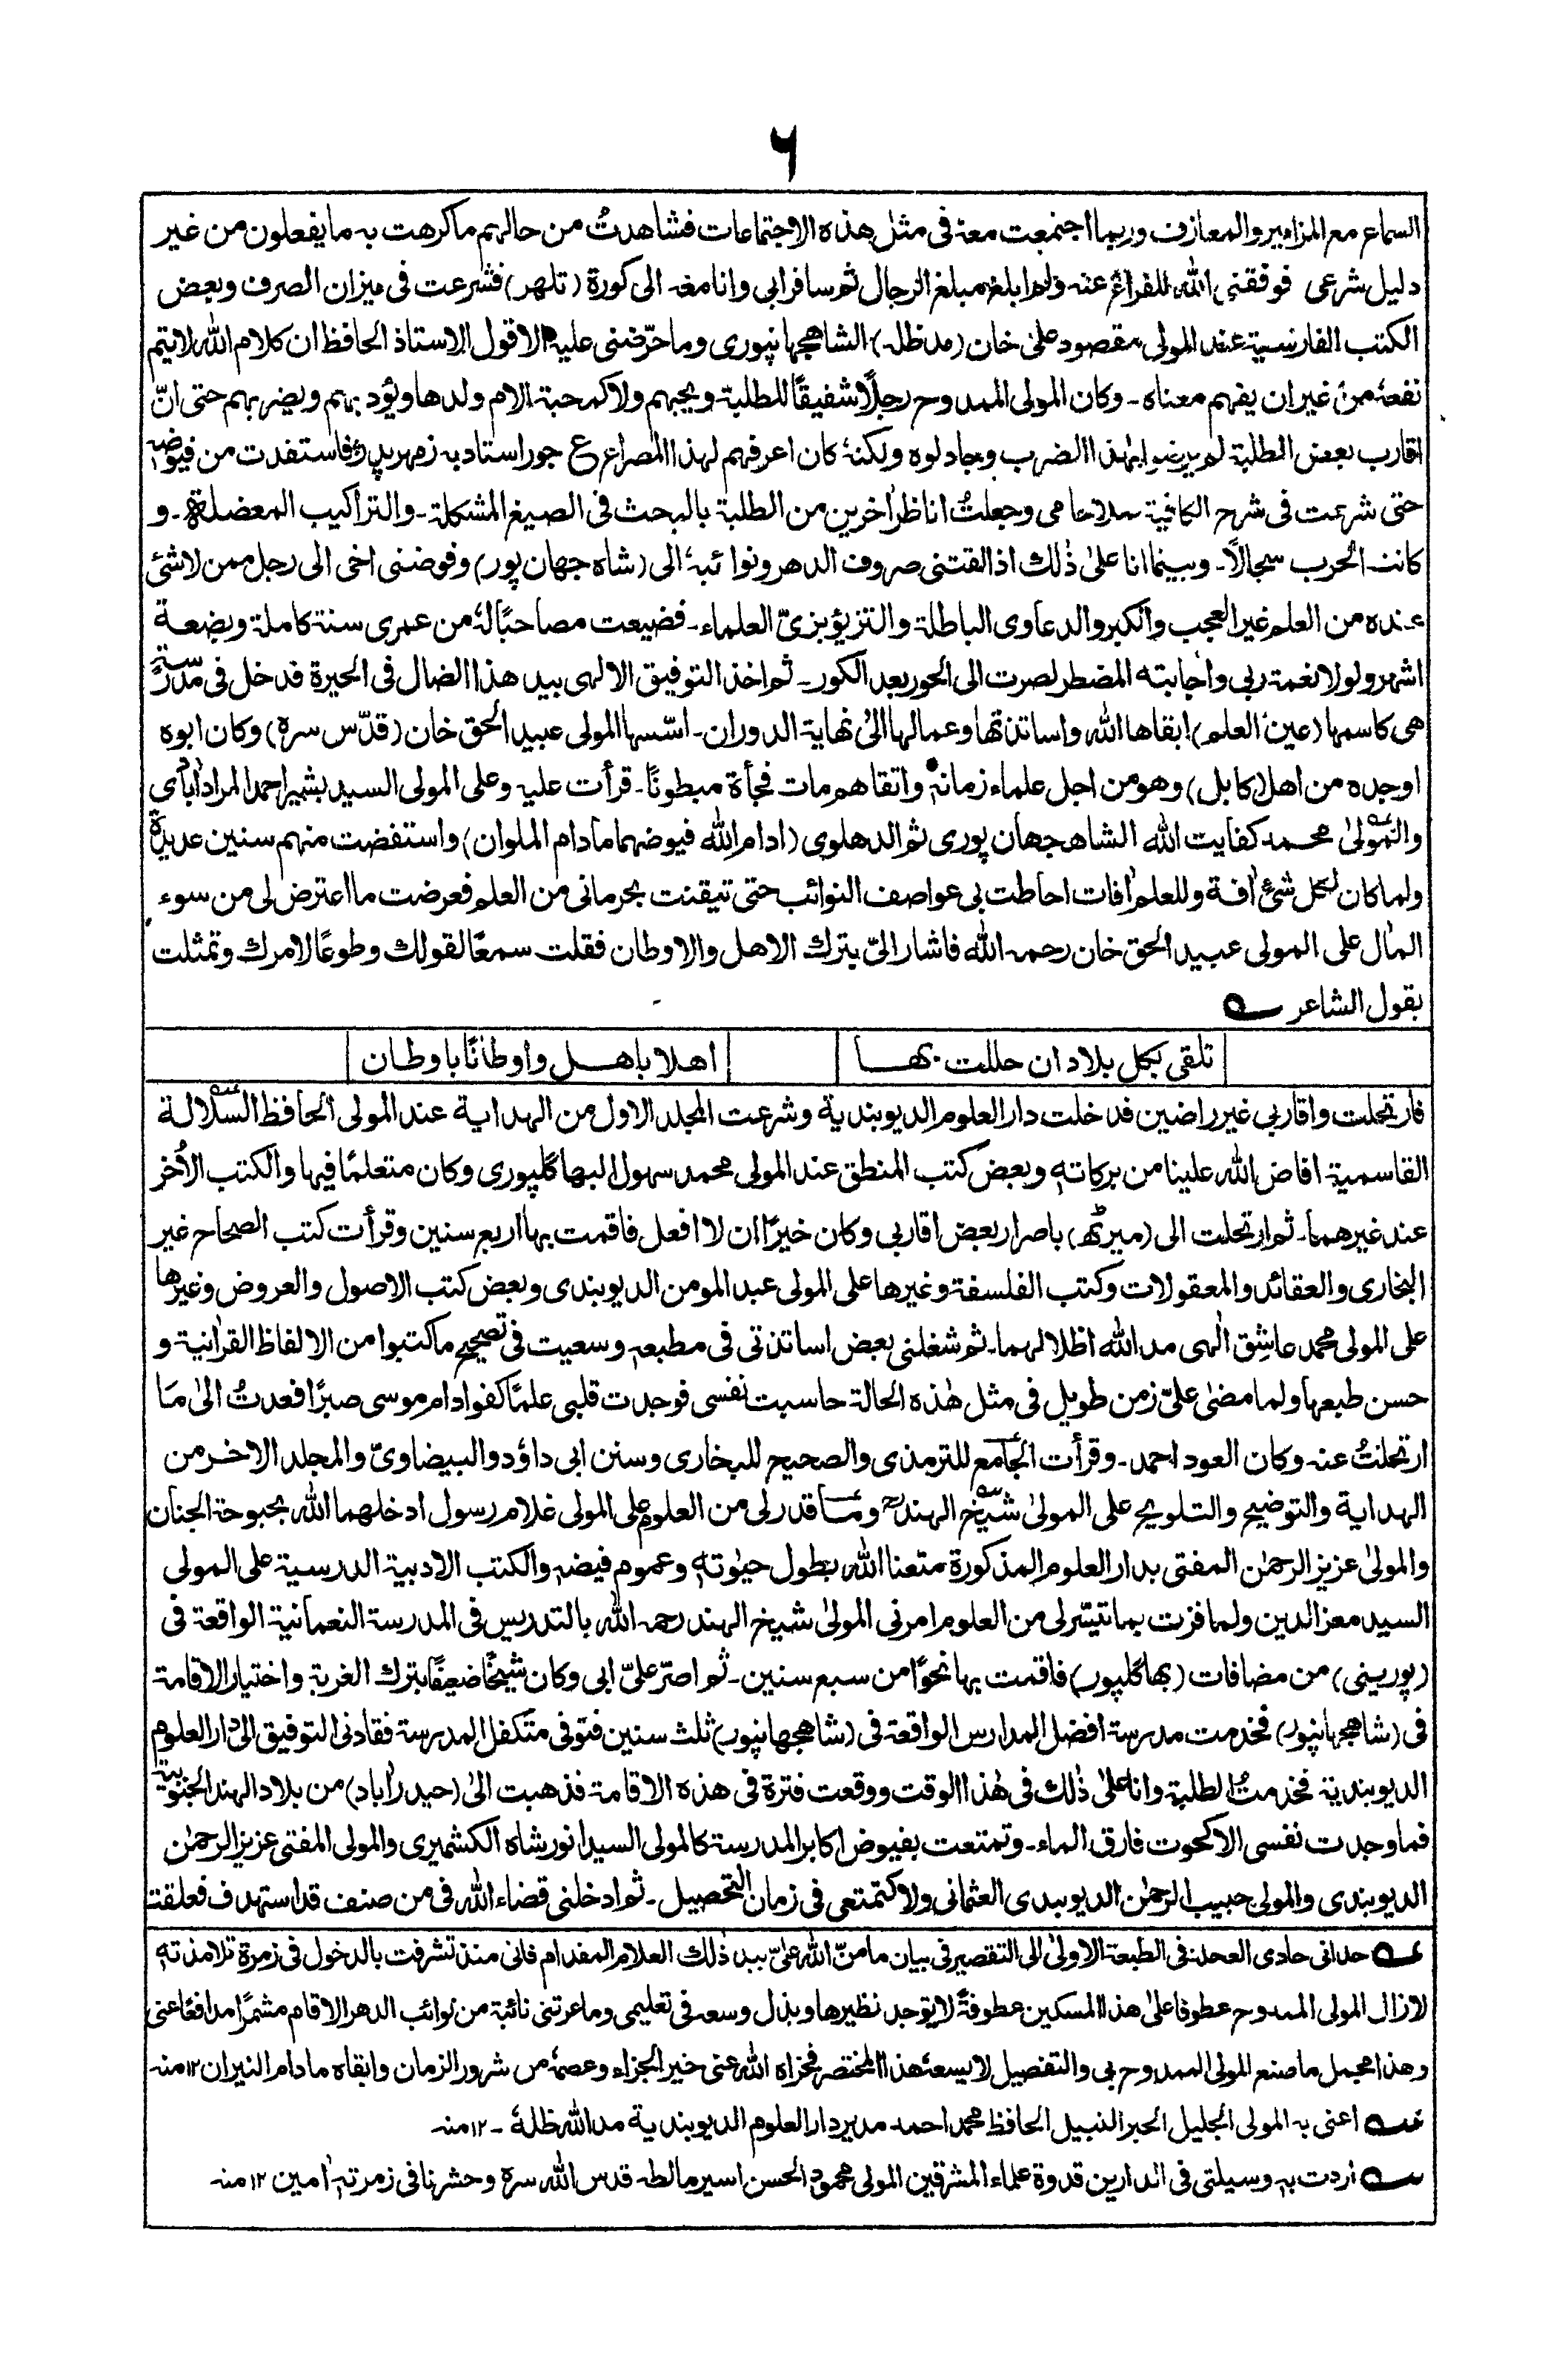 ٦
السماع مع المزامير والمعازف وربما اجتمعت معه فی مثل هذه الاجتماعات فشاهدتُ من حالہم ما کرهت بہ ما یفعلون من غیر
دلیل شرعی فوفقنی اللہ للفراغ عنہ ولم ابلغ مبلغ الرجال ثم سافر ابی وانا معہ الی کورة (تلهر) فشرعت فی میزان الصرف وبعض
الکتب الفارسیة عند المولی مقصود علی خان (مد ظلہ) الشاهجهانپوری وما حرّضنی علیہ الا قول الاستاذ الحافظ ان کلام اللہ لا یتم
نفعہٗ من غیر ان یفہم معناہ ۔ وکان المولی الممدوح رجلًا شفیقًا للطلبة ویحبہم ولا کمحبة الام ولدها ویؤدبہم ویضربہم حتی انّ
اقارب بعض الطلبة لم یرضوا بہٰذا الضرب وجادلوہ ولکنہٗ کان اعرفہم لہذا المصراع ع جور استاد بہ زمہر پدر فاستفدت من فیوضہ
حتی شرعت فی شرح الکافیة ملا جامی وجعلتُ اناظر اٰخرین من الطلبة بالبحث فی الصیغ المشکلة ۔ والتراکیب المعضلة ۔ و
کانت الحرب سجالًا ۔ وبینما انا علیٰ ذٰلک اذ القتنی صروف الدهر ونوائبہٗ الی (شاہ جهان پور) وفوضنی اخی الی رجل ممن لا شئ
عندہ من العلم غیر العجب والکبر والدعاوی الباطلة والتزیؤ بزیّ العلماء ۔ فضیعت مصاحبًا لہٗ من عمری سنة کاملة وبضعة
اشهر ولولا نعمة ربی واجابتہ المضطر لصرت الی الحور بعد الکور ۔ ثم اخذ التوفیق الالٰہی بید هذا الضال فی الحیرة فدخل فی مدرسة
هی کاسمها (عین العلم) ابقاها اللہ واساتذتها وعمالها الیٰ نهایة الدوران ۔ اسّسها المولی عبید الحق خان (قدّس سرہ) وکان ابوہ
او جدہ من اهل (کابل) وهو من اجل علماء زمانہ واتقاهم مات فجأة مبطونًا ۔ قرأت علیہ وعلی المولی السید بشیر احمد المراداٰبادی
والمولیٰ محمد کفایت اللہ الشاهجهان پوری ثم الدهلوی (ادام اللہ فیوضهما مادام الملوان) واستفضت منہم سنین عدیدة
ولما کان لکل شئ اٰفة وللعلم اٰفات احاطت بی عواصف النوائب حتی تیقنت بحرمانی من العلم فعرضت ما اعترض لی من سوء
المآل علی المولی عبید الحق خان رحمہ اللہ فاشار الیّ بترک الاهل والاوطان فقلت سمعًا لقولک وطوعًا لامرک وتمثلت
بقول الشاعر
تلقی بکل بلاد ان حللت بها اهلا باهل واوطانًا باوطان
فارتحلت واقاربی غیر راضین فدخلت دار العلوم الدیوبندیة وشرعت المجلد الاول من الہدایة عند المولی الحافظ السلالة
القاسمیة افاض اللہ علینا من برکاتہٖ وبعض کتب المنطق عند المولی محمد سهول البهاگلپوری وکان متعلمًا فیها والکتب الاُخر
عند غیرهما ۔ ثم ارتحلت الی (میرٹھ) باصرار بعض اقاربی وکان خیرًا ان لا افعل فاقمت بها اربع سنین وقرأت کتب الصحاح غیر
البخاری والعقائد والمعقولات وکتب الفلسفة وغیرها علی المولی عبد المومن الدیوبندی وبعض کتب الاصول والعروض وغیرها
علی المولی محمد عاشق الٰہی مد اللہ اظلالهما ۔ ثم شغلنی بعض اساتذتی فی مطبعہٖ وسعیت فی تصحیح ما کتبوا من الالفاظ القراٰنیة و
حسن طبعها ولما مضیٰ علیّ زمن طویل فی مثل هٰذہ الحالة حاسبت نفسی فوجدت قلبی علمًا کفواد ام موسی صبرًا فعدتُ الیٰ ما
ارتحلتُ عنہ وکان العود احمد ۔ وقرأت الجامع للترمذی والصحیح للبخاری وسنن ابی داؤد والبیضاویّ والمجلد الاخر من
الہدایة والتوضیح والتلویح علی المولیٰ شیخ الہند ؒ وما قدر لی من العلوم علی المولی غلام رسول ادخلهما اللہ بحبوحة الجنان
والمولیٰ عزیز الرحمٰن المفتی بدار العلوم المذکورة متعنا اللہ بطول حیٰوتہٖ وعموم فیضہ والکتب الادبیة الدرسیة علی المولی
السید معز الدین ولما فزت بما تیسّر لی من العلوم امرنی المولیٰ شیخ الہند رحمہ اللہ بالتدریس فی المدرسة النعمانیة الواقعة فی
(پورینی) من مضافات (بهاگلپور) فاقمت بها نحوًا من سبع سنین ۔ ثم اصرّ علیّ ابی وکان شیخًا ضعیفًا بترک الغربة واختیار الاقامة
فی (شاهجہانپور) فخدمت مدرسة افضل المدارس الواقعة فی (شاهجهانپور) ثلث سنین فتوفی متکفل المدرسة فقادنی التوفیق الی دار العلوم
الدیوبندیة فخدمتُ الطلبة وانا علیٰ ذٰلک فی هٰذا الوقت ووقعت فترة فی هذہ الاقامة فذهبت الیٰ (حیدراٰباد) من بلاد الهند الجنوبیة
فما وجدت نفسی الا کحوت فارق الماء ۔ وتمتعت بفیوض اکابر المدرسة کالمولی السید انور شاہ الکشمیری والمولی المفتی عزیز الرحمٰن
الدیوبندی والمولی حبیب الرحمٰن الدیوبندی العثمانی ولا کتمتعی فی زمان التحصیل ۔ ثم ادخلنی قضاء اللہ فی من صنف قد استهدف فعلقت
عہ حدانی حادی العجلة فی الطبعة الاولیٰ الی التقصیر فی بیان ما منّ اللہ علیّ بید ذٰلک العلام المقدام فانی منذ تشرفت بالدخول فی زمرة تلامذتہٖ
لا زال المولی الممدوح عطوفا علیٰ هذا المسکین عطوفةً لا یوجد نظیرها وبذل وسعہ فی تعلیمی وما عرتنی نائبة من نوائب الدهر الا قام مشمرًا مدافعًا عنی
وهذا مجمل ما صنع المولی الممدوح بی والتفصیل لا یسعہٗ هذا المختصر فجزاہ اللہ عنی خیر الجزاء وعصمہٗ من شرور الزمان وابقاہ ما دام النیران ١٢ منہ
عہ اعنی بہ المولی الجلیل الحبر النبیل الحافظ محمد احمد مدیر دار العلوم الدیوبندیة مد اللہ ظلہٗ ۔ ١٢ منہ
سہ اردت بہ وسیلتی فی الدارین قدوة علماء المشرقین المولی محمود الحسن اسیر مالطہ قدس اللہ سرہ وحشرنا فی زمرتہٖ اٰمین ١٢ منہ